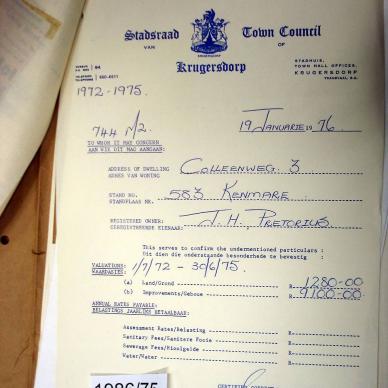 Stadsraad Town Council
VAN OF
Krugersdorp
STADHUIS,
TOWN HALL OFFICES,
KRUGERSDORP
TRANSVAAL, S.A.
94
660-6011
1972-1975.
744 M/2
19 JANUARIE 19 76
TO WHOM IT MAY CONCERN
AAN WIE DIT MAG AANGAAN:
ADDRESS OF DWELLING
ADRES VAN WONING
COLLEENWEG 3
STAND NO.
STANDPLAAS NR.
583 KENMARE
REGISTERED OWNER:
GEREGISTREERDE EIENAAR:
J. H. PRETORIUS
This serves to confirm the undermentioned particulars :
Dit dien die onderstaande besonderhede te bevestig :
VALUATIONS:
WAARDASIES:
1/7/72 - 30/6/75.
(a) Land/Grond R 1280-00
(b) Improvements/Geboue R 9100-00
ANNUAL RATES PAYABLE:
BELASTINGS JAARLIKS BETAALBAAR:
Assessment Rates/Belasting R
Sanitary Fees/Sanitere Fooie R
Sewerage Fees/Rioolgelde R
Water/Water R
1986/75